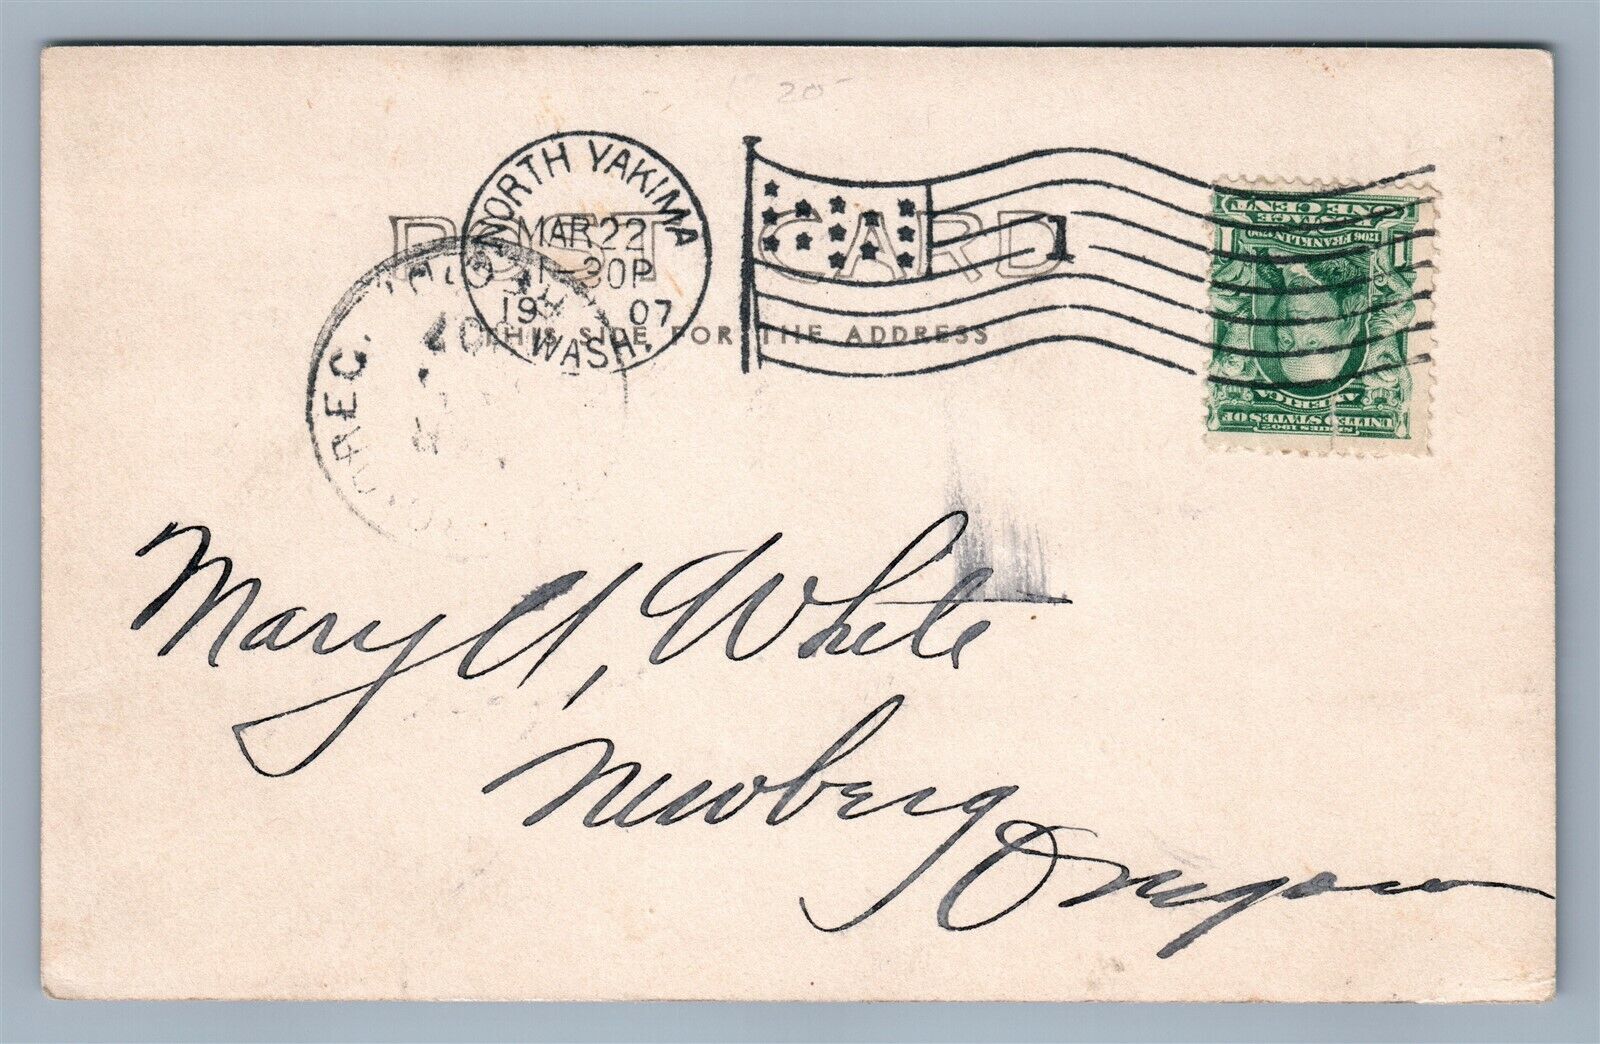 20
NORTH YAKIMA
MAR 22
1-30P
19 07
WASH.
1
POST CARD
THIS SIDE FOR THE ADDRESS
REC.
07
ONE CENT
POSTAGE
1706 FRANKLIN 1790
1 1
AMERICA
UNITED STATES OF
SERIES 1902
Mary A, White
Newberg
Oregon